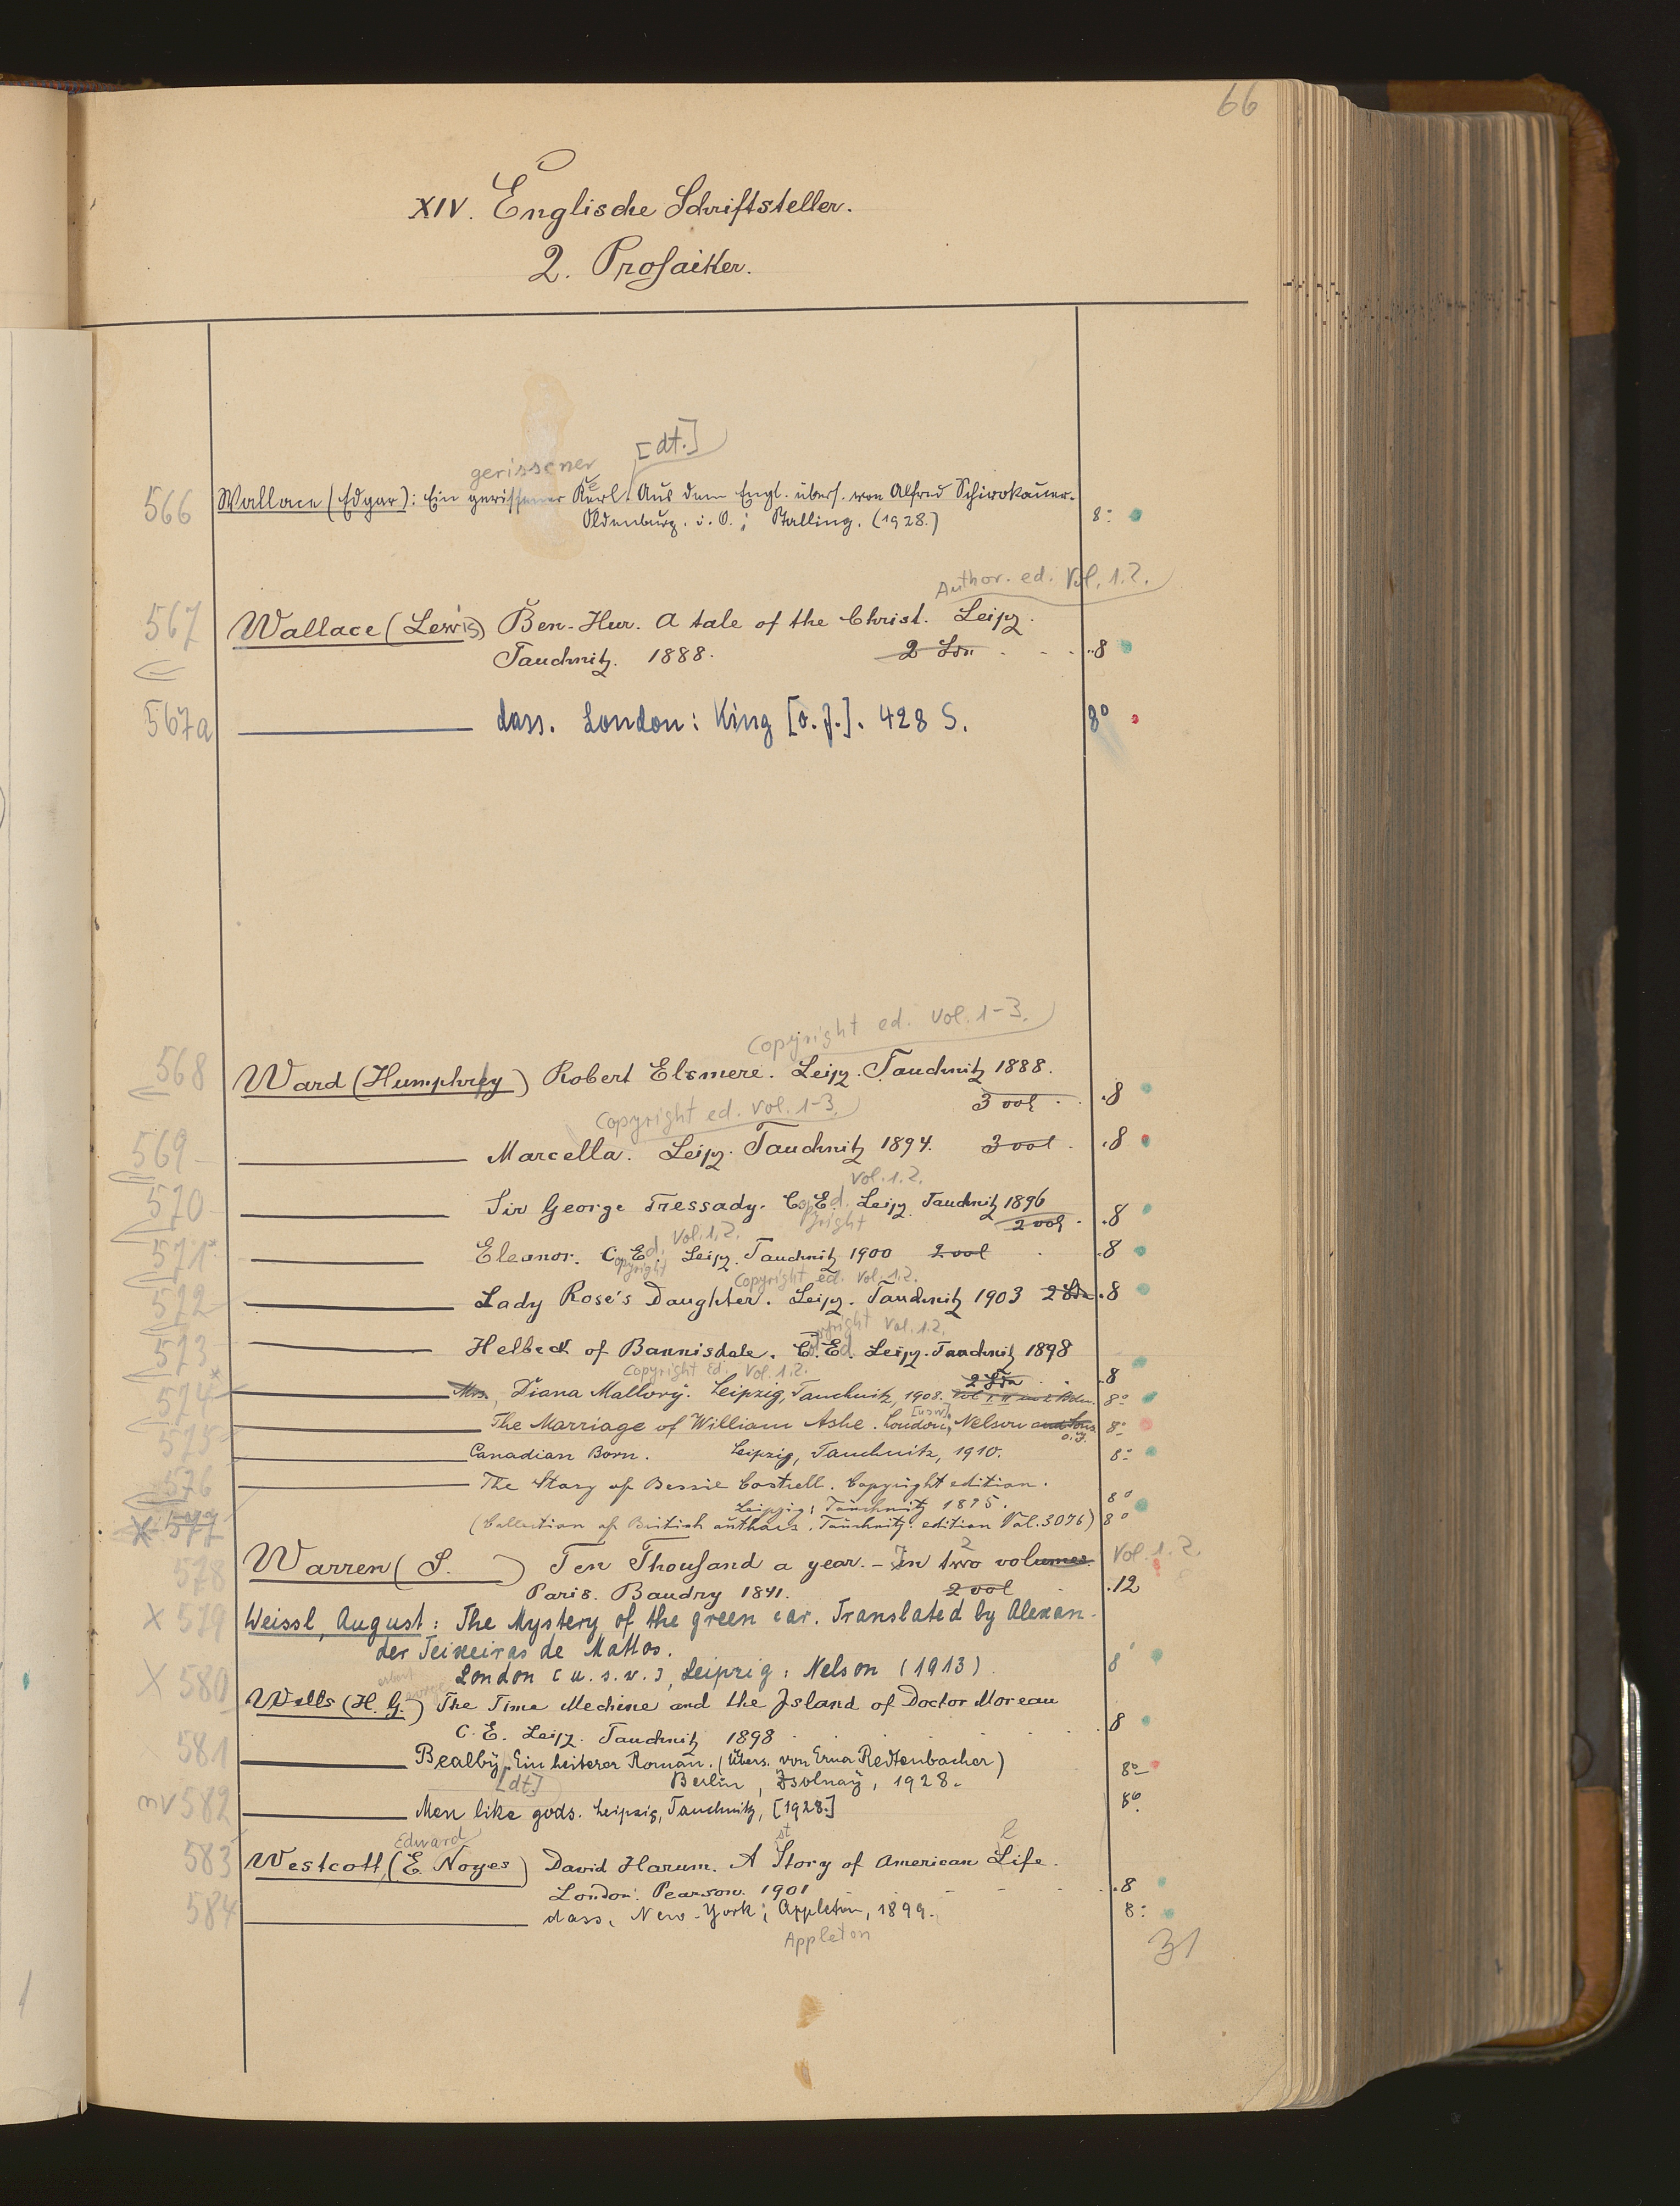 66
XIV. Englische Schriftsteller.
2. Prosaiker.
[dt.]
gerissener
566 Wallace (Edgar): Ein gerissener Kerl. Aus dem Engl. übers. von Alfred Schirokauer.
Oldenburg. i. O.; Stalling. (1928.) 8°
Author. ed. Vol. 1.2.
567 Wallace (Lewis) Ben-Hur. A tale of the Christ. Leipz.
Tauchnitz. 1888. 2 Bde 8
567a dass. London: King [o. J.]. 428 S. 8°
Copyright ed. Vol. 1-3.
568 Ward (Humphrey) Robert Elsmere. Leipz. Tauchnitz 1888.
3 vol 8
Copyright ed. Vol. 1-3.
569 Marcella. Leipz. Tauchnitz 1894. 3 vol 8
Vol. 1.2.
570 Sir George Tressady. C. Ed. Leipz. Tauchnitz 1896
opyright 2 vol 8
Vol. 1.2.
571 Eleanor. C. Ed. Leipz. Tauchnitz 1900 2 vol 8
opyright
Copyright ed. Vol. 1.2.
572 Lady Rose's Daughter. Leipz. Tauchnitz 1903 2 Bde 8
opyright Vol. 1.2.
573 Helbeck of Bannisdale. C. Ed. Leipz. Tauchnitz 1898
2 Bde 8
Copyright Ed. Vol. 1.2.
574 Mrs. Diana Mallory. Leipzig, Tauchnitz, 1908. Vol I. II in 2 Bdn. 8°
[usw.]
575 The Marriage of William Ashe. London, Nelson and Sons 8°
o. J.
576 Canadian Born. Leipzig, Tauchnitz, 1910. 8°
X 577 The Story of Bessie Costrell. Copyright edition.
Leipzig: Tauchnitz 1895. 8°
(Collection of British authors. Tauchnitz edition Vol. 3076) 8°
2
578 Warren (S. ) Ten Thousand a year. - In two volumes. Vol. 1.2.
Paris. Baudry 1841. 2 vol 12
X 579 Weissl, August: The Mystery of the green car. Translated by Alexan-
der Teixeiras de Mattos.
London [u. s. w.], Leipzig: Nelson (1913) 8°
X 580 Wells (H. G.) The Time Mechine and the Island of Doctor Moreau
C. E. Leipz. Tauchnitz 1898 8
581 Bealby. Ein heiterer Roman. (Übers. von Erna Redtenbacher)
[dt.] Berlin, Zsolnay, 1928. 8°
nv 582 Men like gods. Leipzig, Tauchnitz, [1928.] 8°
Edward st l
583 Westcott (E. Noyes) David Harum. A Story of American Life.
London. Pearson. 1901 8
584 dass. New-York; Appleton, 1899. 8°
Appleton
31